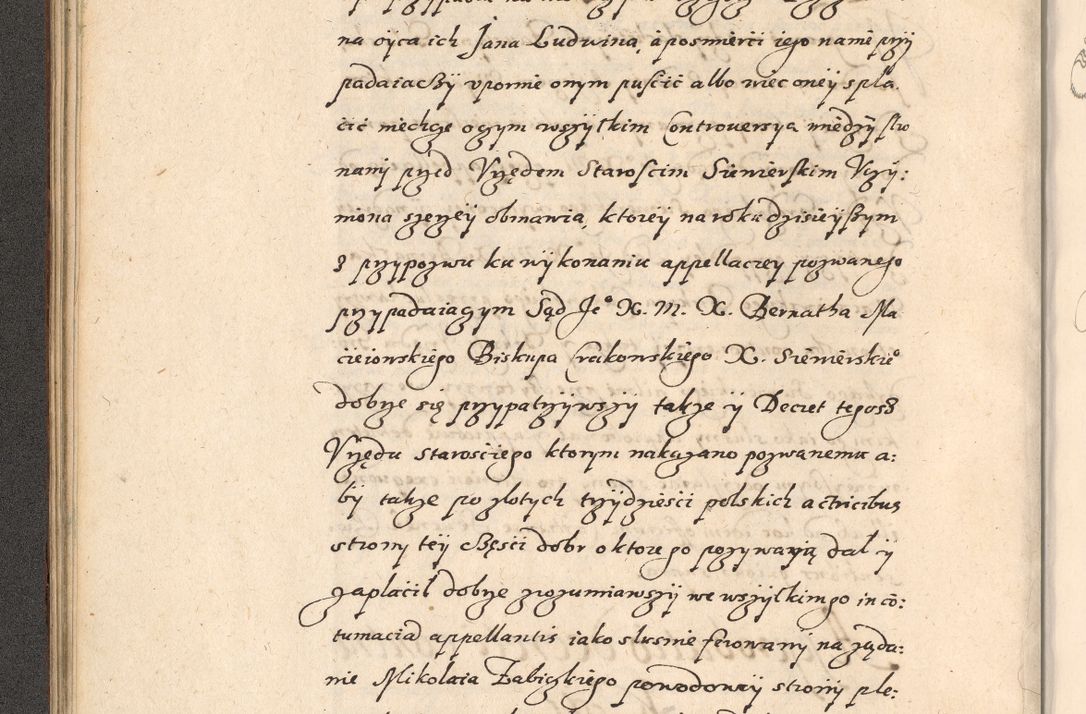 na oyca ich Jana Ludwina, a po smierci iego na nie przy
padaiaczy vpornie onym puścić albo więc oney spła,
cić niechcze o czym wszytkim Controversya między stro
nami przed Vrzędem Starościm Siewierskim Vczy:
niona szerzey obmawia, ktorey na roku dzisieyszym
z przypozwu ku wykonaniu appellaczey pozwanego
przypadaiączym Sąd Jeº X. M. X. Bernatha Ma
cieiowskiego Biskupa Crakowskiego X. Siewierskieº
dobrze się przypatrzywszy także y Decret tegosz
Vrzędu Starościego ktorym nakazano pozwanemu a:
by także po złotych trzydzieści polskich actricibus
strony tey części dobr o ktore go pozywaią dał y
zapłacił dobrze zrozumiawszy we wszytkim go in cō:
tumacia appellantis iako slusnie ferowany na ząda:
nie Mikołaia Żabiczkiego powodowey strony ple: